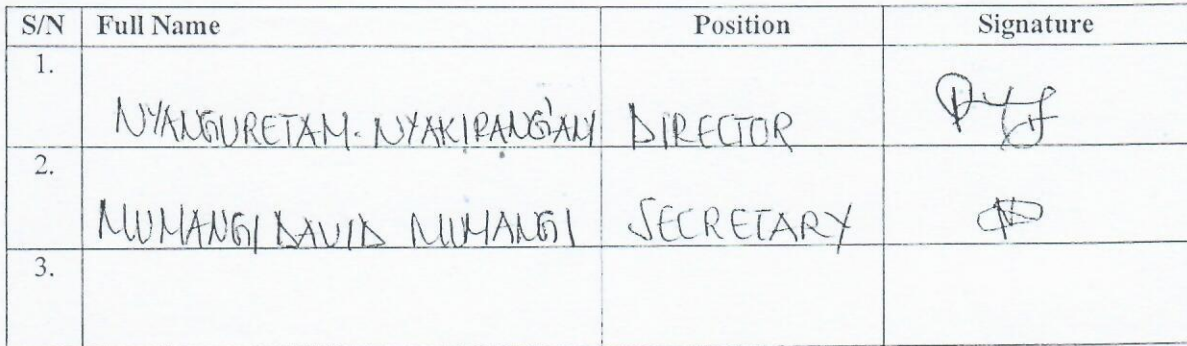 S/N Full Name Position Signature
1.
NYANGURETA M. NYAKIRANG'ANY DIRECTOR
2.
DAVID SECRETARY
3.